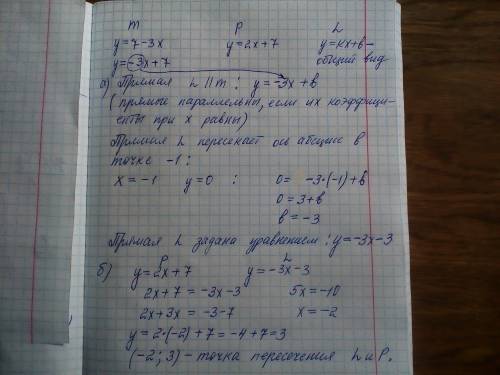 m P L
y=7-3x y=2x+7 y=kx+b-
y=-3x+7 общий вид
а) Прямая L || m: y=-3x+b
(прямые параллельны, если их коэффици-
енты при x равны)
Прямая L пересекает ось абсцисс в
точке -1:
x=-1 y=0 : 0= -3·(-1)+b
0=3+b
b=-3
Прямая L задана уравнением: y=-3x-3
P L
б) y=2x+7 y=-3x-3
2x+7=-3x-3 5x=-10
2x+3x=-3-7 x=-2
y=2·(-2)+7=-4+7=3
(-2;3)-точка пересечения L и P.